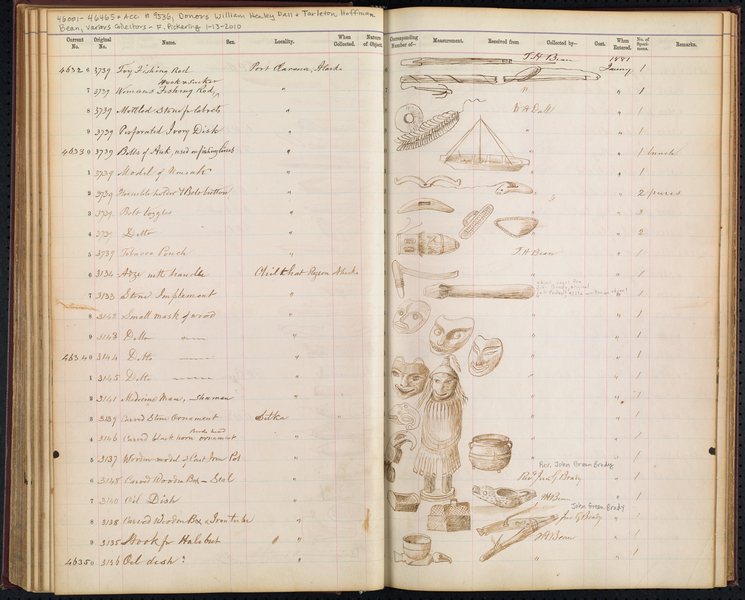 46001-46465 Acc # 9336, Donors William Healey Dall & Tarleton Hoffman
Bean, various collectors - F. Pickering 1-13-2010
Current No. Original No. Name. Sex. Locality. When Collected. Nature of Object. Corresponding Number of— Measurement. Received from. Collected by— Cost. When Entered. No. of Specimens. Remarks.
46326 3739 Toy Fishing Rod Port Clarence, Alaska T.H. Bean 1881 Jany 1
Hook & Sinker
7 3739 Womans Fishing Rod, " " 1
8 3739 Mottled Stone for labrets " W H Dall " 1
9 3739 Perforated Ivory Disk " " 1
46330 3739 Bolts of Auk, used on fishing lines " " 1 bunch
1 3739 Model of Umiak " " 1
2 3739 Thimble holder & Belt button " " 2 pieces
3 3739 Belt toggles " " 3
4 3739 Ditto " " 2
5 3739 Tobacco Pouch " T.H Bean " 1
6 3134 Adze with handle Chilkhat Region Alaska " 1
7 3133 Stone Implement " " 1
8 3142 Small mask of wood " " 1
9 3143 Ditto " " 1
46340 3144 Ditto " " 1
1 3145 Ditto " " 1
2 3141 Medicine Man, - shaman " " 1
3 3139 Carved Stone Ornament Sitka " " 1
4 3146 Carved black horn ornament " " 1
5 3137 Wooden model of Cast Iron Pot " " 1
Rev. John Green Brady
6 3148 Carved Wooden Box - Seal " Revd Jno. G Brady " 1
7 3140 Oil Dish " TH Bean " 1
John Green Brady
8 3138 Carved Wooden Box " Jno G Brady " 1
9 3135 Hook for Halibut " TH Bean " 1
46350 3136 Oil dish? " " " 1